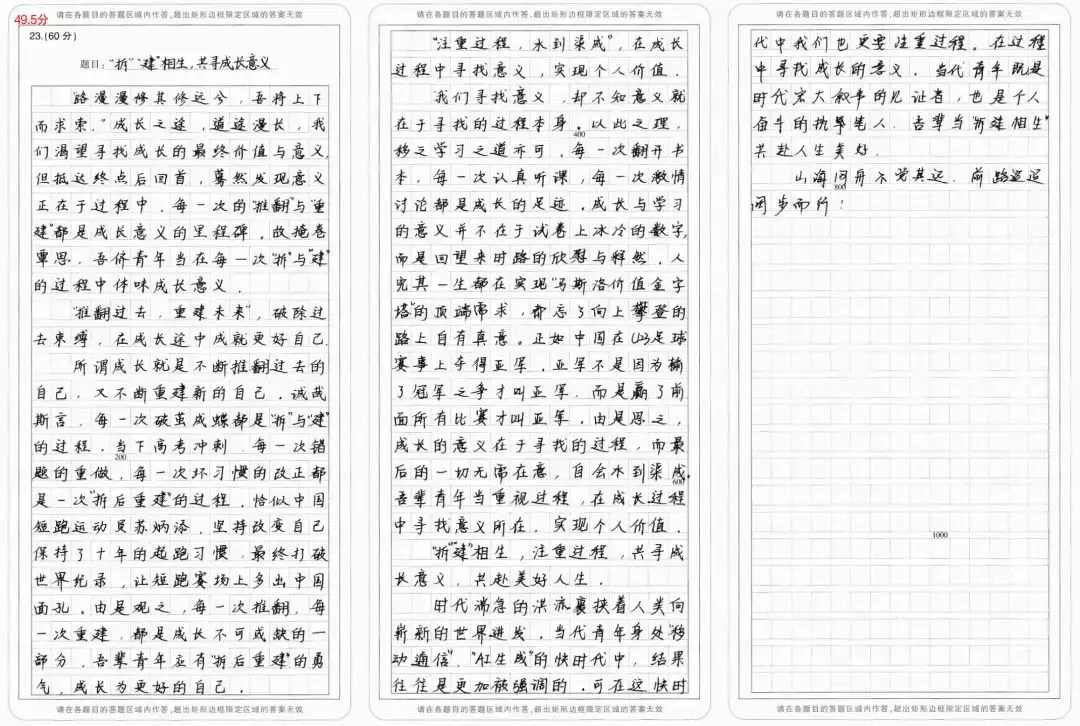 请在各题目的答题区域内作答,超出矩形边框限定区域的答案无效
49.5分
23.(60分)
题目:"拆""建"相生,共寻成长意义
"路漫漫修其修远兮,吾将上下
而求索."成长之途,道途漫长,我
们渴望寻找成长的最终价值与意义,
但抵达终点后回首,蓦然发现意义
正在于过程中.每一次的"推翻"与"重
建"都是成长意义的里程碑.故掩卷
覃思,吾侪青年当在每一次"拆"与"建"
的过程中体味成长意义.
"推翻过去,重建未来",破除过
去束缚,在成长途中成就更好自己.
所谓成长就是不断推翻过去的
自己,又不断重建新的自己.诚哉
斯言,每一次破茧成蝶都是"拆"与"建"
的过程.当下高考冲刺,每一次错
200
题的重做,每一次坏习惯的改正都
是一次"拆后重建"的过程.恰似中国
短跑运动员苏炳添,坚持改变自己
保持了十年的起跑习惯,最终打破
世界纪录,让短跑赛场上多出中国
面孔。由是观之,每一次推翻,每
一次重建,都是成长不可或缺的一
部分,吾辈青年应有"拆后重建"的勇
气,成长为更好的自己.
请在各题目的答题区域内作答,超出矩形边框限定区域的答案无效
请在各题目的答题区域内作答,超出矩形边框限定区域的答案无效
"注重过程,水到渠成",在成长
过程中寻找意义,实现个人价值.
"我们寻找意义,却不知意义就
在于寻找的过程本身。以此之理,
400
移之学习之道亦可.每一次翻开书
本,每一次认真听课,每一次激情
讨论都是成长的足迹.成长与学习
的意义并不在于试卷上冰冷的数字,
而是回望来时路的欣慰与释然.人
究其一生都在实现"马斯洛价值金字
塔"的顶端需求,却忘了向上攀登的
路上自有真意。正如中国在U23足球
赛事上夺得亚军,亚军不是因为输
了冠军之争才叫亚军,而是赢了前
面所有比赛才叫亚军.由是思之,
成长的意义在于寻找的过程,而最
后的一切无需在意,自会水到渠成。
600
吾辈青年当重视过程,在成长过程
中寻找意义所在,实现个人价值.
"拆""建"相生,注重过程,共寻成
长意义,共赴美好人生.
时代湍急的洪流裹挟着人类向
崭新的世界进发,当代青年身处"移
动通信","AI生成"的快时代中,结果
往往是更加被强调的.可在这快时
请在各题目的答题区域内作答,超出矩形边框限定区域的答案无效
请在各题目的答题区域内作答,超出矩形边框限定区域的答案无效
代中我们也更要注重过程.在过程
中寻找成长的意义.当代青年既是
时代宏大叙事的见证者,也是个人
奋斗的执笔人.吾辈当"拆建相生"
共赴人生美好.
山海问舟不觉其远.前路迢迢
800
阔步而行!
1000
请在各题目的答题区域内作答,超出矩形边框限定区域的答案无效